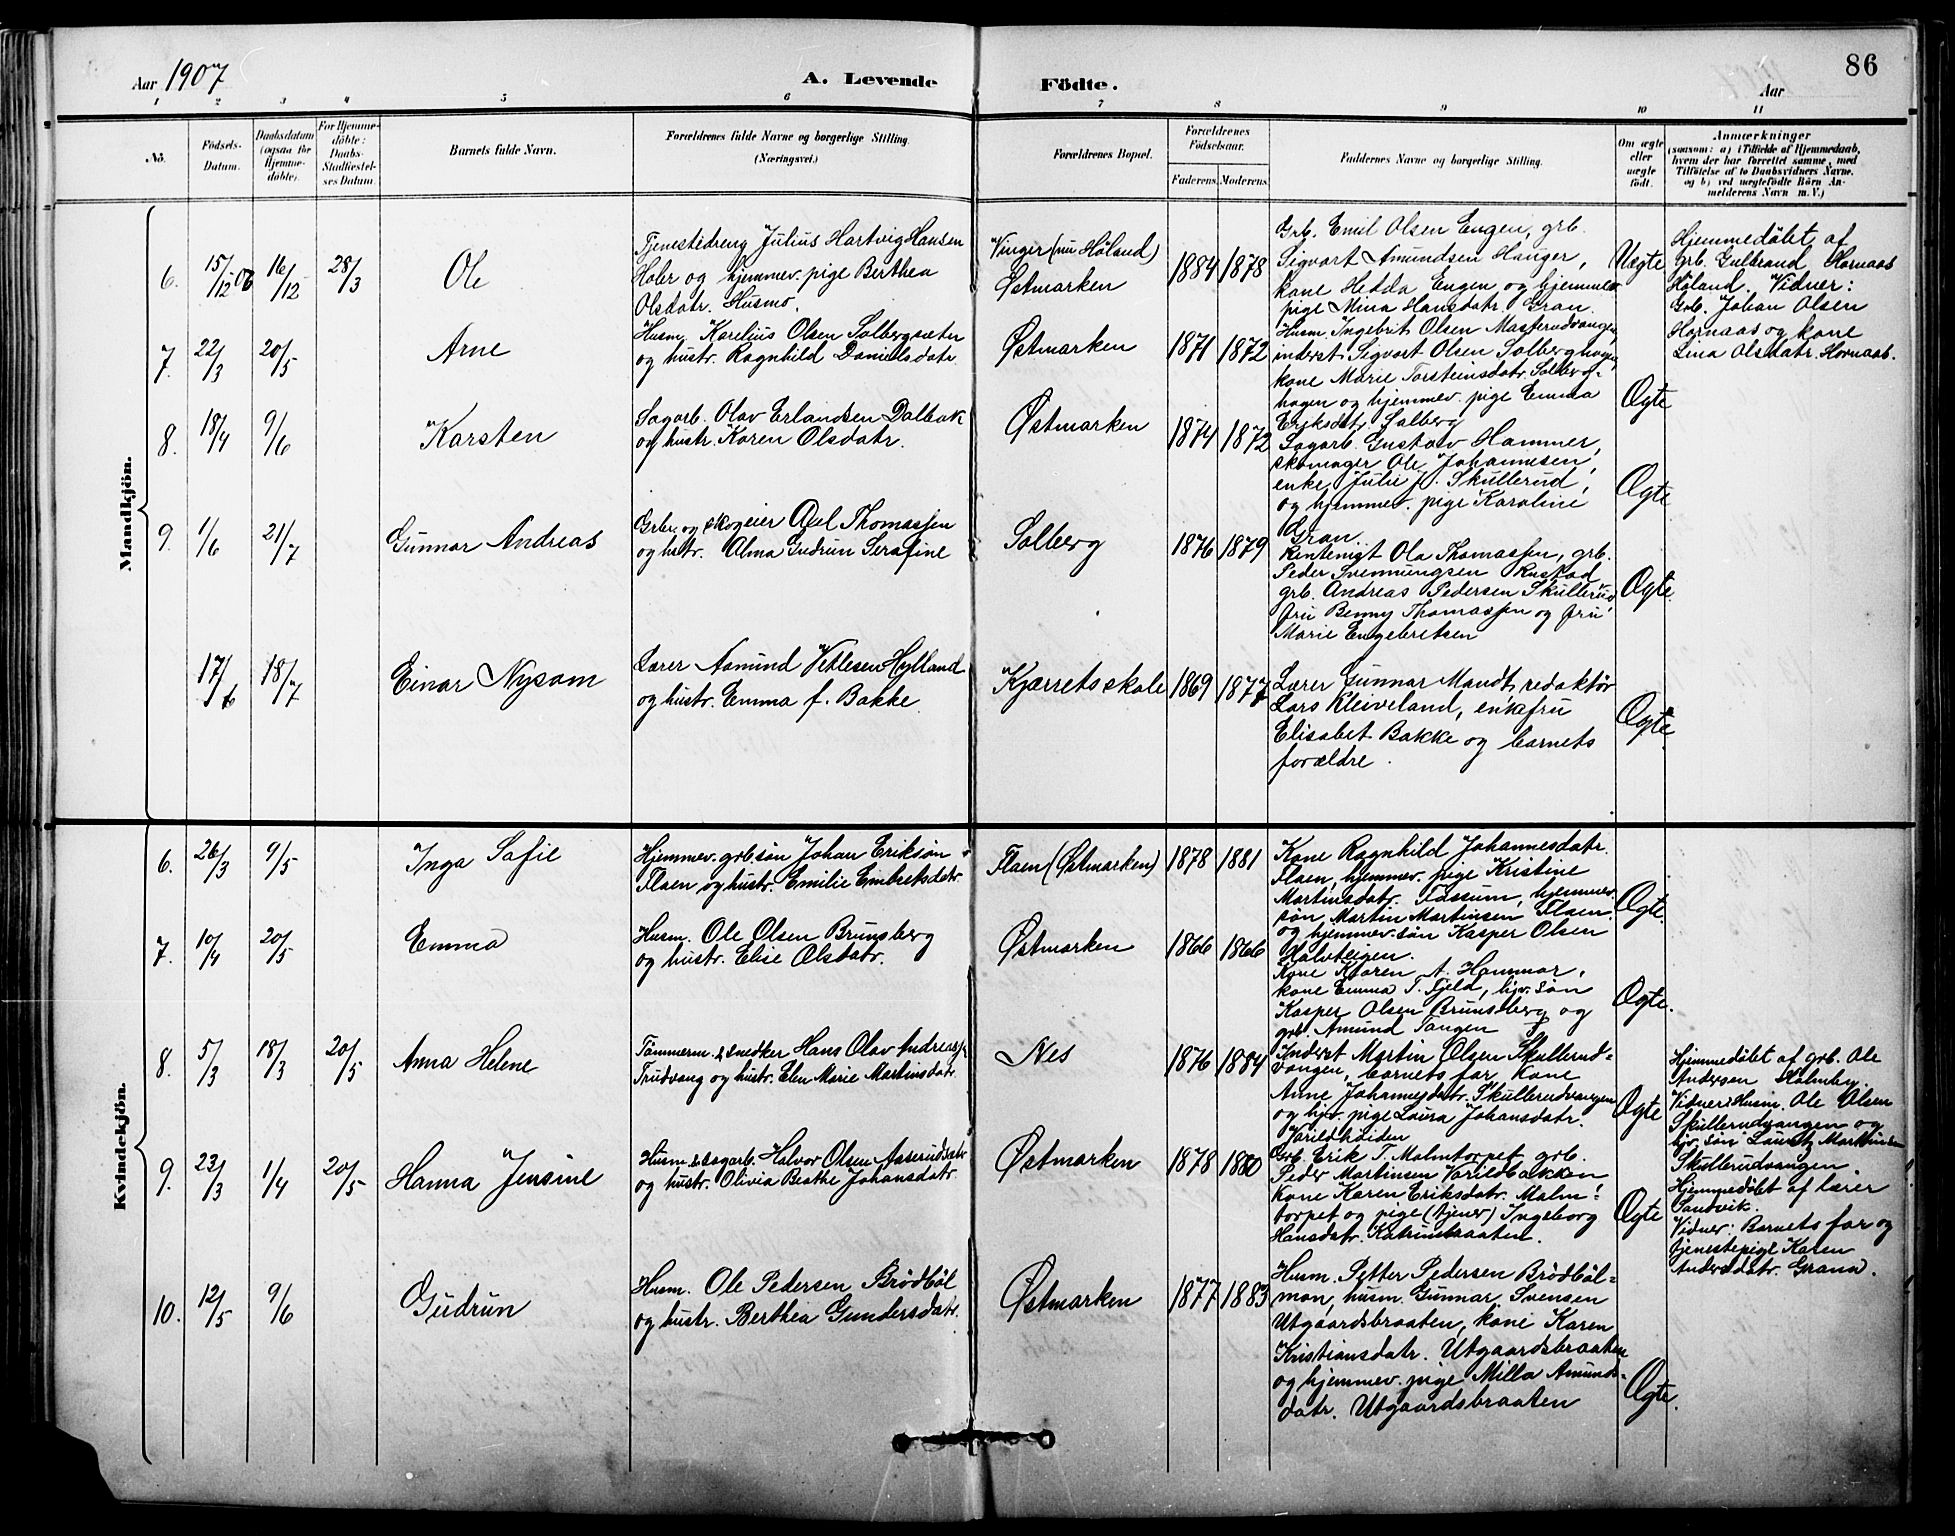 86
Aar 1907
A. Levende Födte.
Aar
1 2 3 4 5 6 7 8 9 10 11
Nö.
Födsels-
Datum.
Daabsdatum
(ogsaa for
Hjemme-
döbte).
For Hjemme-
döbte:
Daabs-
Stadfæstel-
ses Datum.
Barnets fulde Navn.
Forældrenes fulde Navne og borgerlige Stilling.
(Næringsvei.)
Forældrenes Bopæl.
Forældrenes
Födselsaar.
Faderens. Moderens.
Faddernes Navne og borgerlige Stilling.
Om ægte
eller
uægte
födt.
Anmærkninger
(saasom: a) i Tilfælde af Hjemmedaab,
hvem der har forrettet samme, med
Tilföielse af to Daabsvidners Navne,
og b) ved uægtefödte Börn An-
melderens Navn m. V.)
Mandkjön.
6. 15/12 06 16/12 28/3 Ole
Tjenestedreng Julius Hartvig Hansen
Holer og hjemmev. pige Berthea
Olsdatr. Husmo.
Vinger (nu Höland)
Østmarken
1884 1878
Grb. Emil Olsen Engen, grb.
Sigvart Amundsen Hauger,
kone Hedda Engen og hjemmev.
pige Mina Hansdatr. Gran.
Uægte
Hjemmedöbt af
Grb. Gulbrand Hornaas
Höland. Vidner:
Grb. Johan Olsen
Hornaas og kone
Lina Olsdatr. Hornaas.
7. 22/3 20/5 Arne
Husm. Karelius Olsen Solbergsæter
og hustr. Ragnhild Danielsdatr.
Østmarken
1871 1872
Husm. Ingebrit Olsen Masterudvangen,
inderst Sigvart Olsen Solberghagen,
kone Marie Torsteinsdatr. Solberg-
hagen og hjemmev. pige Emma
Eriksdatr. Solberg
Ægte
8. 18/4 9/6 Karsten
Sagarb. Olav Erlandsen Dalbak
og hustr. Karen Olsdatr.
Østmarken
1874 1872
Sagarb. Gustav Hammer,
skomager Ole Johannesen,
enke Julie J. Skullerud,
og hjemmev. pige Karoline
Gran.
Ægte
9. 1/6 21/7 Gunnar Andreas
Grbr. og skogeier Axel Thomassen
og hstr. Alma Gudrun Serafine
Solberg
1876 1879
Rentenist Ola Thomassen, grb.
Peder Svenningsen Rustad
grb. Andreas Pedersen Skullerud
fru Benny Thomassen og fru
Marie Engebretsen
Ægte.
17/6 18/7 Einar Nysom
Lærer Aamund Vetlesen Hylland
og hustr. Emma f. Bakke.
Kjærrets skole
1869 1877
Lærer Gunnar Mandt, redaktör
Lars Kleiveland, enkefru
Elisabet Bakke og barnets
forældre.
Ægte.
Kvindekjön.
6. 26/3 9/5 Inga Sofie
Hjemmev. grb.sön Johan Eriksön
Flaen og hustr. Emilie Embretsdatr.
Flaen (Østmarken)
1878 1881
Kone Ragnhild Johannesdatr.
Flaen, hjemmev. pige Kristine
Martinsdatr. Fossum, hjemmev.
sön Martin Martinsen Flaen
og hjemmev. sön Kasper Olsen
Halvteigen.
Ægte.
7. 10/4 20/5 Emma
Husm. Ole Olsen Brunsberg
og hustr. Elise Olsdatr.
Østmarken
1866 1866
Kone Karen A. Hammar,
kone Emma T. Fjeld, hjv. sön
Kasper Olsen Brunsberg og
grb. Amund Tangen
Ægte.
8. 5/3 18/3 20/5 Anna Helene
Tömmerm. & snedker Hans Olav Andreass.
Trudvang og hustr. Elen Marie Martinsdatr.
Nes
1876 1884
Inderst Martin Olsen Skullerud-
vangen, barnets far, kone
Anne Johannesdatr. Skullerudvangen
og hjv. pige Laura Johansdatr.
Varildheiden
Ægte
Hjemmedöbt af grb. Ole
Andersen Holmby.
Vidner: Husm. Ole Olsen
Skullerudvangen og
hjv. sön Lauritz Martinsen
Skullerudvangen.
9. 23/3 1/4 20/5 Hanna Jensine
Husm. & sagarb. Halvor Olsen Aaserudsætr
og hustr. Olivia Beathe Johansdatr.
Østmarken
1878 1880
Grb. Erik T. Malmtorpet, grb.
Peder Martinsen Varildbakken
kone Karen Eriksdatr. Malm-
torpet og pige (tjener) Ingeborg
Hansdatr. Katrinebraaten.
Ægte
Hjemmedöbt af lærer
Sandvik.
Vidner: Barnets far og
tjenestepige Karen
Andersdatr. Grana.
10. 12/5 9/6 Gudrun
Husm. Ole Pedersen Brödböl
og hustr. Berthea Gundersdatr.
Østmarken
1877 1883
Husm. Petter Pedersen Brödböl-
mon, husm. Gunnar Svensen
Utgaardsbraaten, kone Karen
Kristiansdatr. Utgaardsbraaten
og hjemmev. pige Milla Amunds-
datr. Utgaardsbraaten
Ægte.